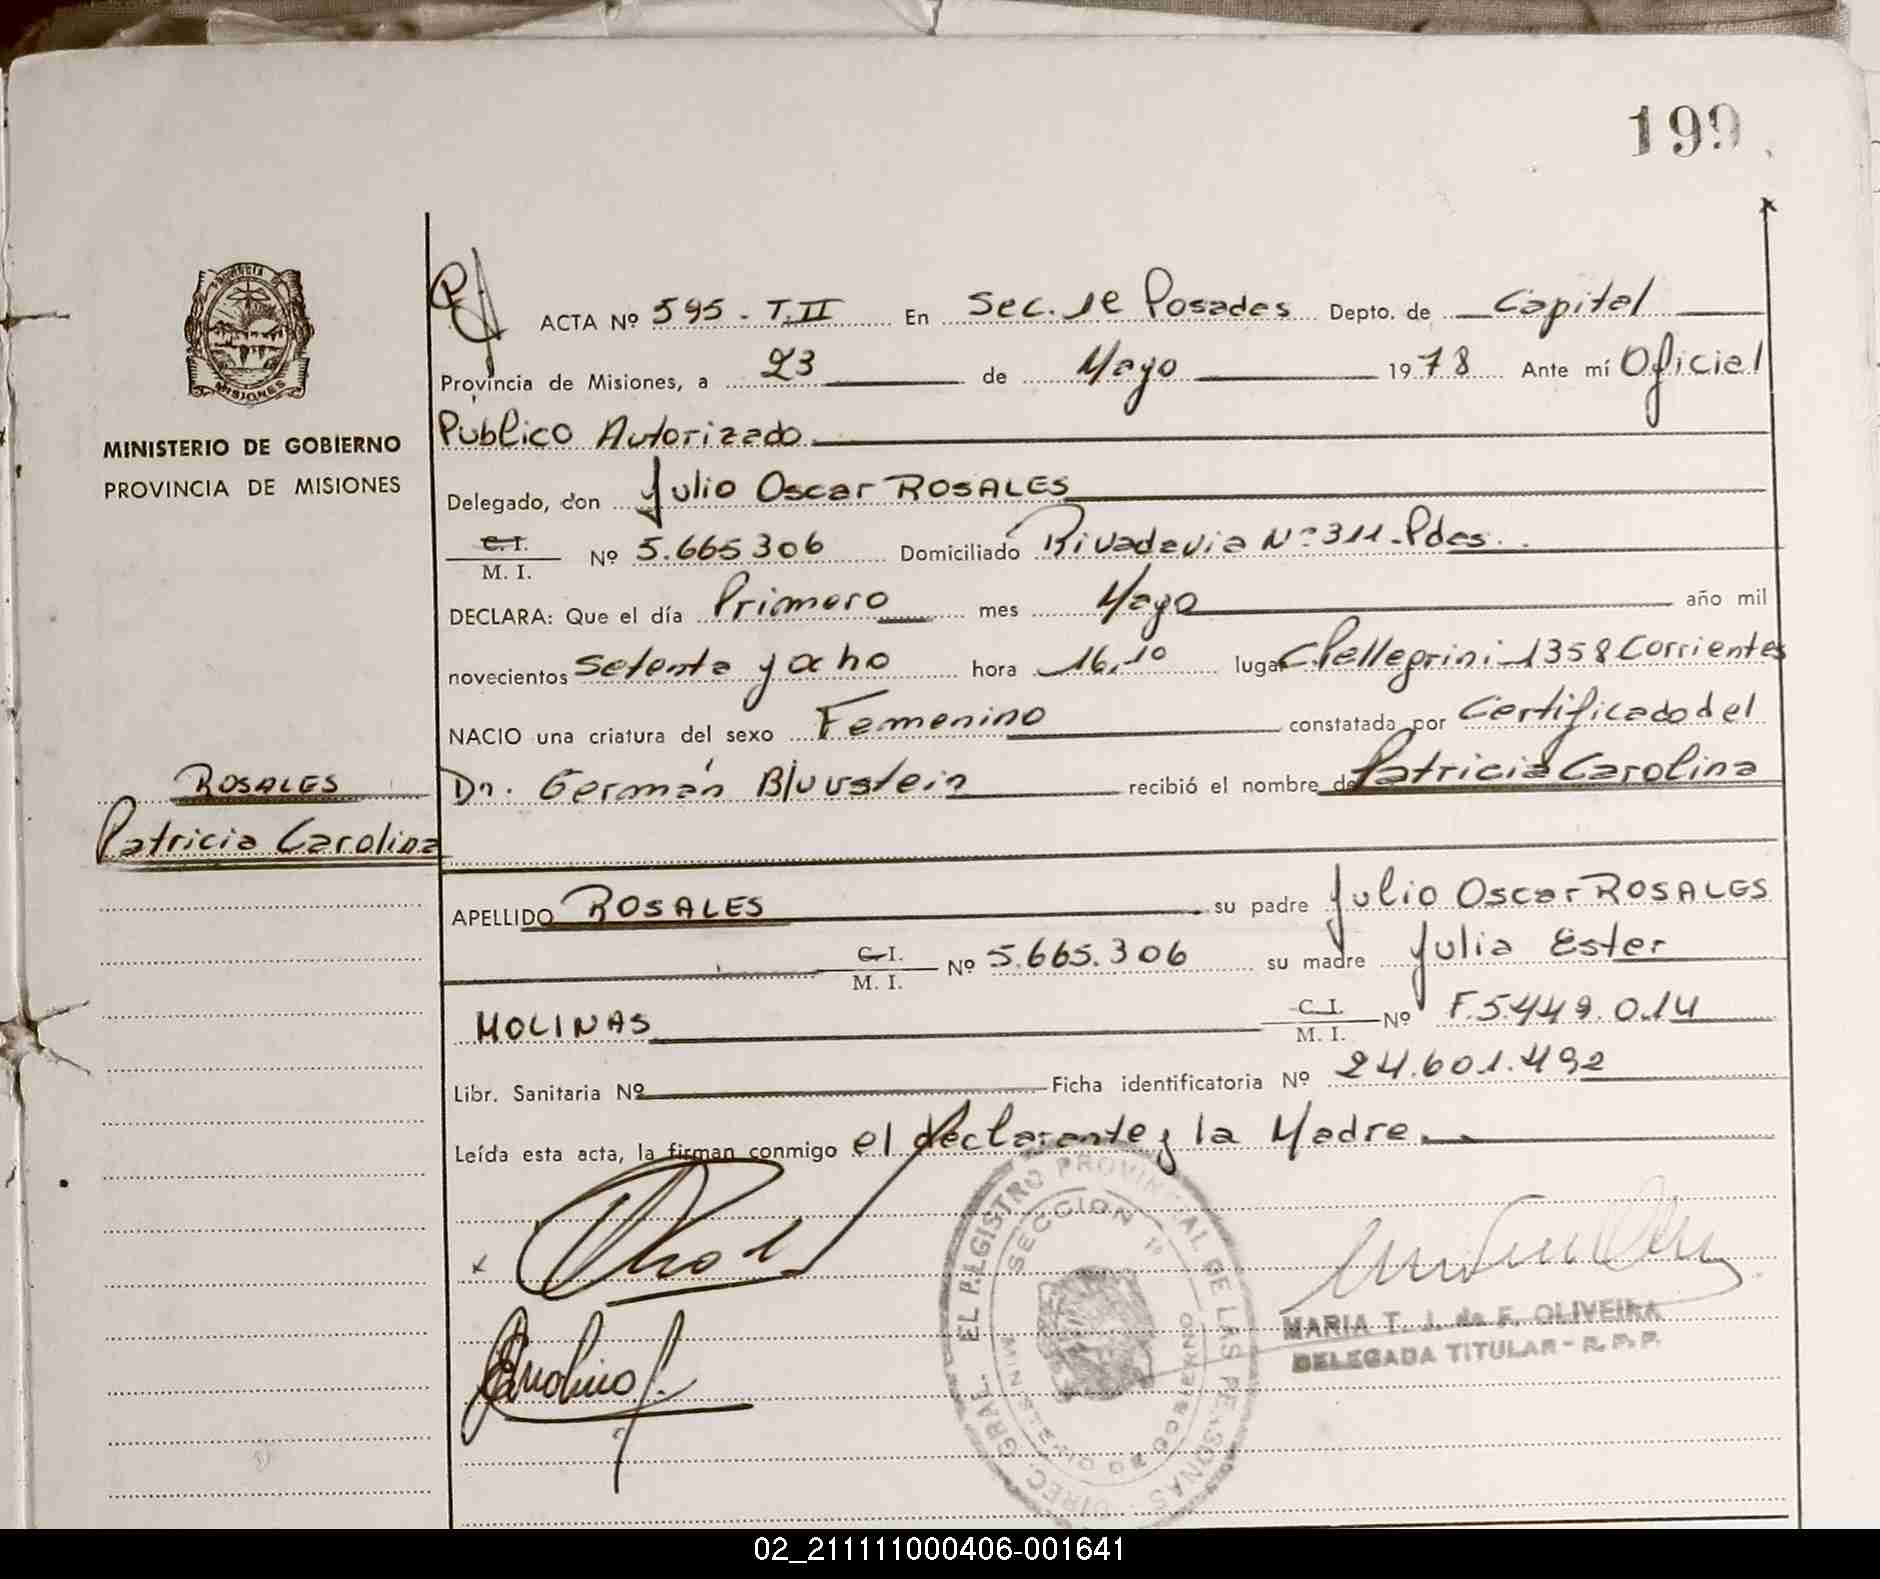 199
PROVINCIA DE
MISIONES
MINISTERIO DE GOBIERNO
PROVINCIA DE MISIONES
ACTA Nº 595 - T. II En Sec. de Posadas Depto. de Capital
Provincia de Misiones, a 23 de Mayo 1978 Ante mí Oficial
Publico Autorizado
Delegado, don Julio Oscar ROSALES
C. I. / M. I. Nº 5.665306 Domiciliado Rivadavia Nº 311 - Pdas.
DECLARA: Que el día Primero mes Mayo año mil
novecientos Setenta y ocho hora 16,10 lugar C. Pellegrini 1358 Corrientes
NACIO una criatura del sexo Femenino constatada por Certificado del
Dr. Germán Bluvstein recibió el nombre de Patricia Carolina
ROSALES
Patricia Carolina
APELLIDO ROSALES su padre Julio Oscar ROSALES
C. I. / M. I. Nº 5.665.306 su madre Julia Ester
MOLINAS C. I. / M. I. Nº F.5449.014
Libr. Sanitaria Nº Ficha identificatoria Nº 24.601.492
Leída esta acta, la firman conmigo el declarante y la Madre
DIREC. GRAL. EL REGISTRO PROVINCIAL DE LAS PERSONAS
SECCION 1ª
MINISTERIO DE GOBIERNO
MARIA T. J. de F. OLIVEIRA
DELEGADA TITULAR - R. P. P.
02_211111000406-001641